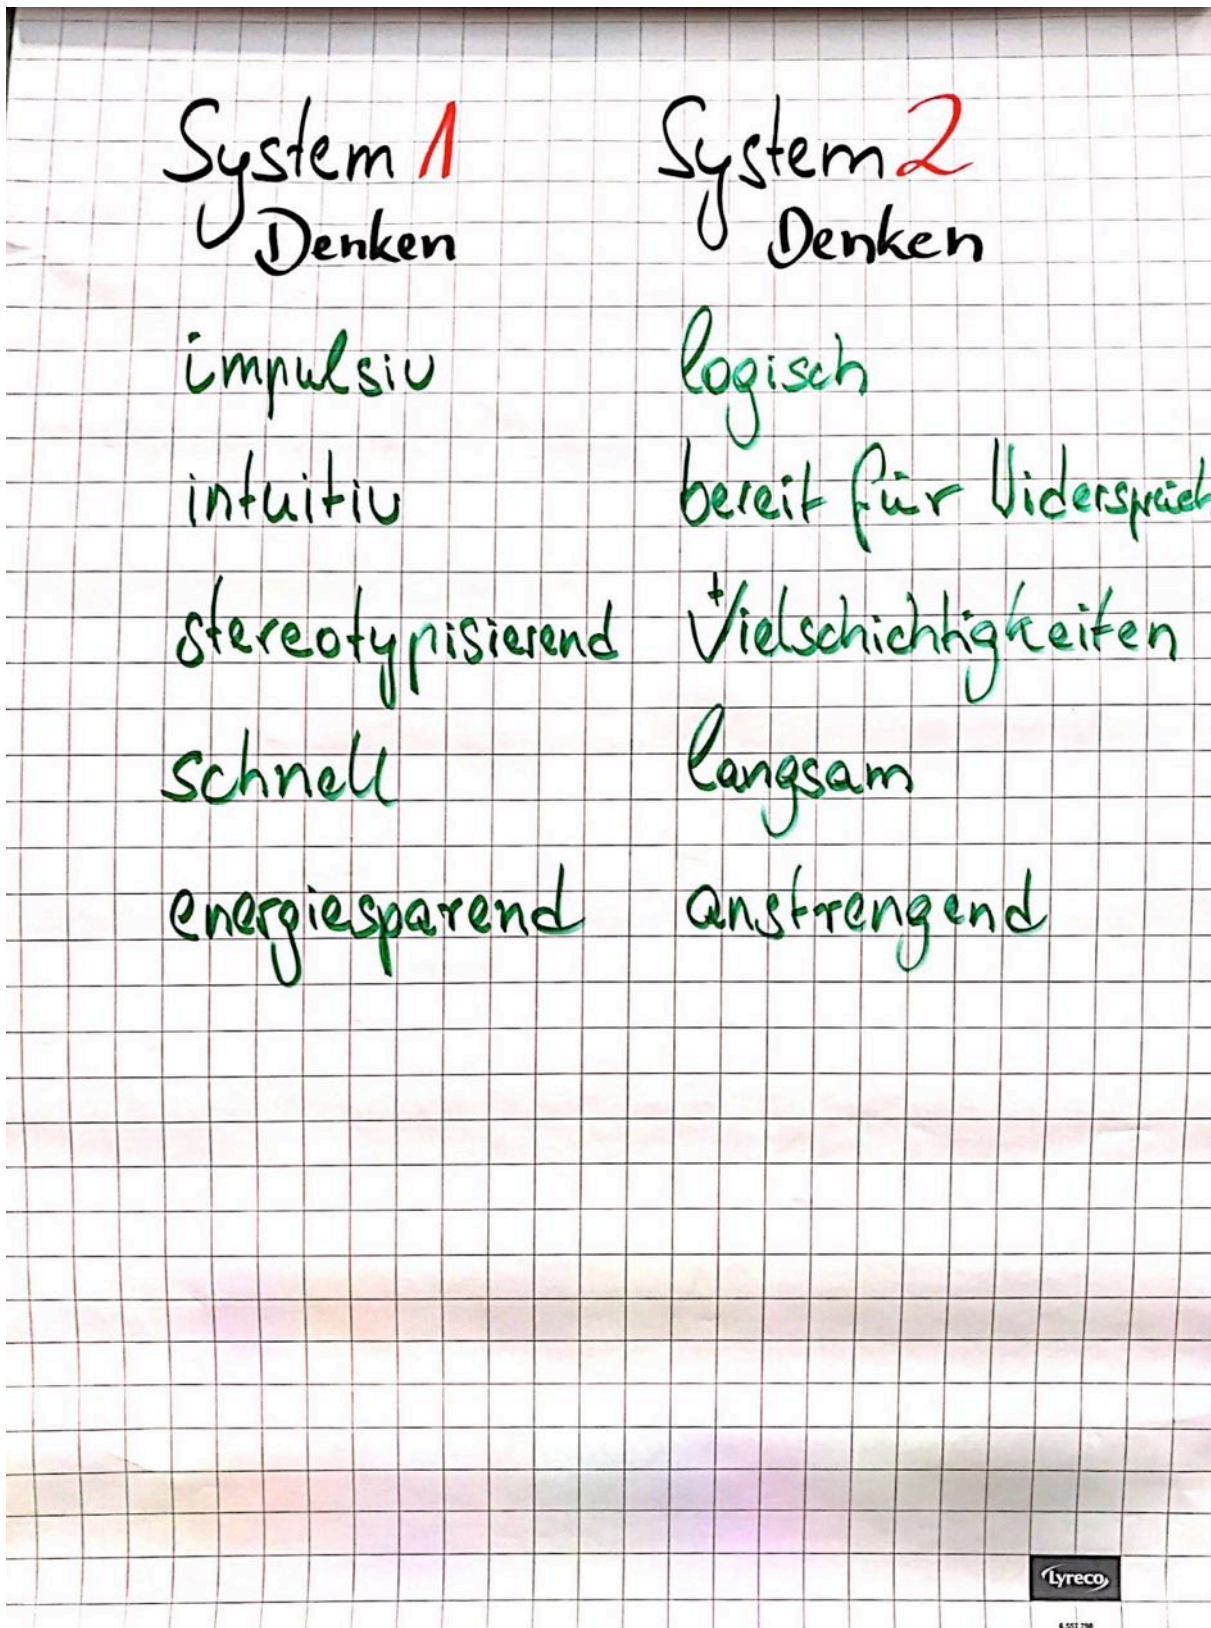 System 1
Denken
impulsiv
intuitiv
stereotypisierend
schnell
energiesparend
System 2
Denken
logisch
bereit für
+ Vielschichtigkeiten
langsam
anstrengend
Lyreco